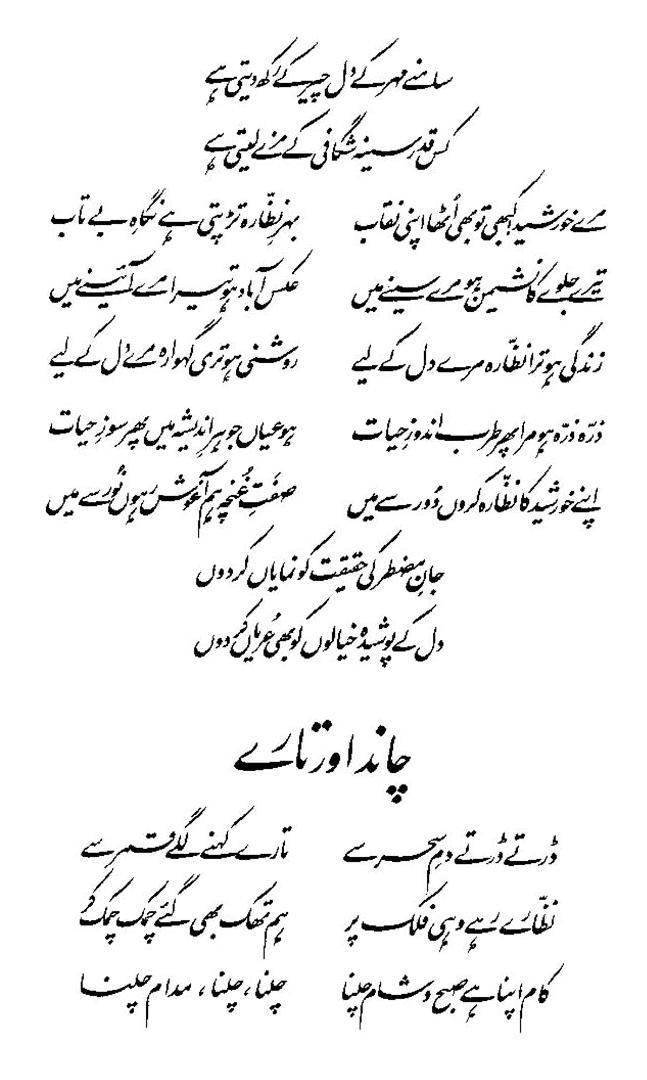 سامنے مہر کے دل چیر کے رکھ دیتی ہے
کس قدر سینہ شگافی کے مزے لیتی ہے
مرے خورشید! کبھی تو بھی اُٹھا اپنی نقاب بہرِ نظّارہ تڑپتی ہے نگاہِ بے تاب
تیرے جلوے کا نشیمن ہو مرے سینے میں عکس آباد ہو تیرا مرے آئینے میں
زندگی ہو ترا نظّارہ مرے دل کے لیے روشنی ہو تری گہوارہ مرے دل کے لیے
ذرّہ ذرّہ ہو مرا پھر طرب اندوزِ حیات ہو عیاں جوہرِ اندیشہ میں پھر سوزِ حیات
اپنے خورشید کا نظّارہ کروں دُور سے میں صفَتِ غُنچہ ہم آغوش رہوں نُور سے میں
جانِ مضطر کی حقیقت کو نمایاں کر دوں
دل کے پوشیدہ خیالوں کو بھی عُریاں کر دوں
چاند اور تارے
ڈرتے ڈرتے دمِ سحر سے تارے کہنے لگے قمر سے
نظّارے رہے وہی فلک پر ہم تھک بھی گئے چمک چمک کر
کام اپنا ہے صبح و شام چلنا چلنا، چلنا، مدام چلنا